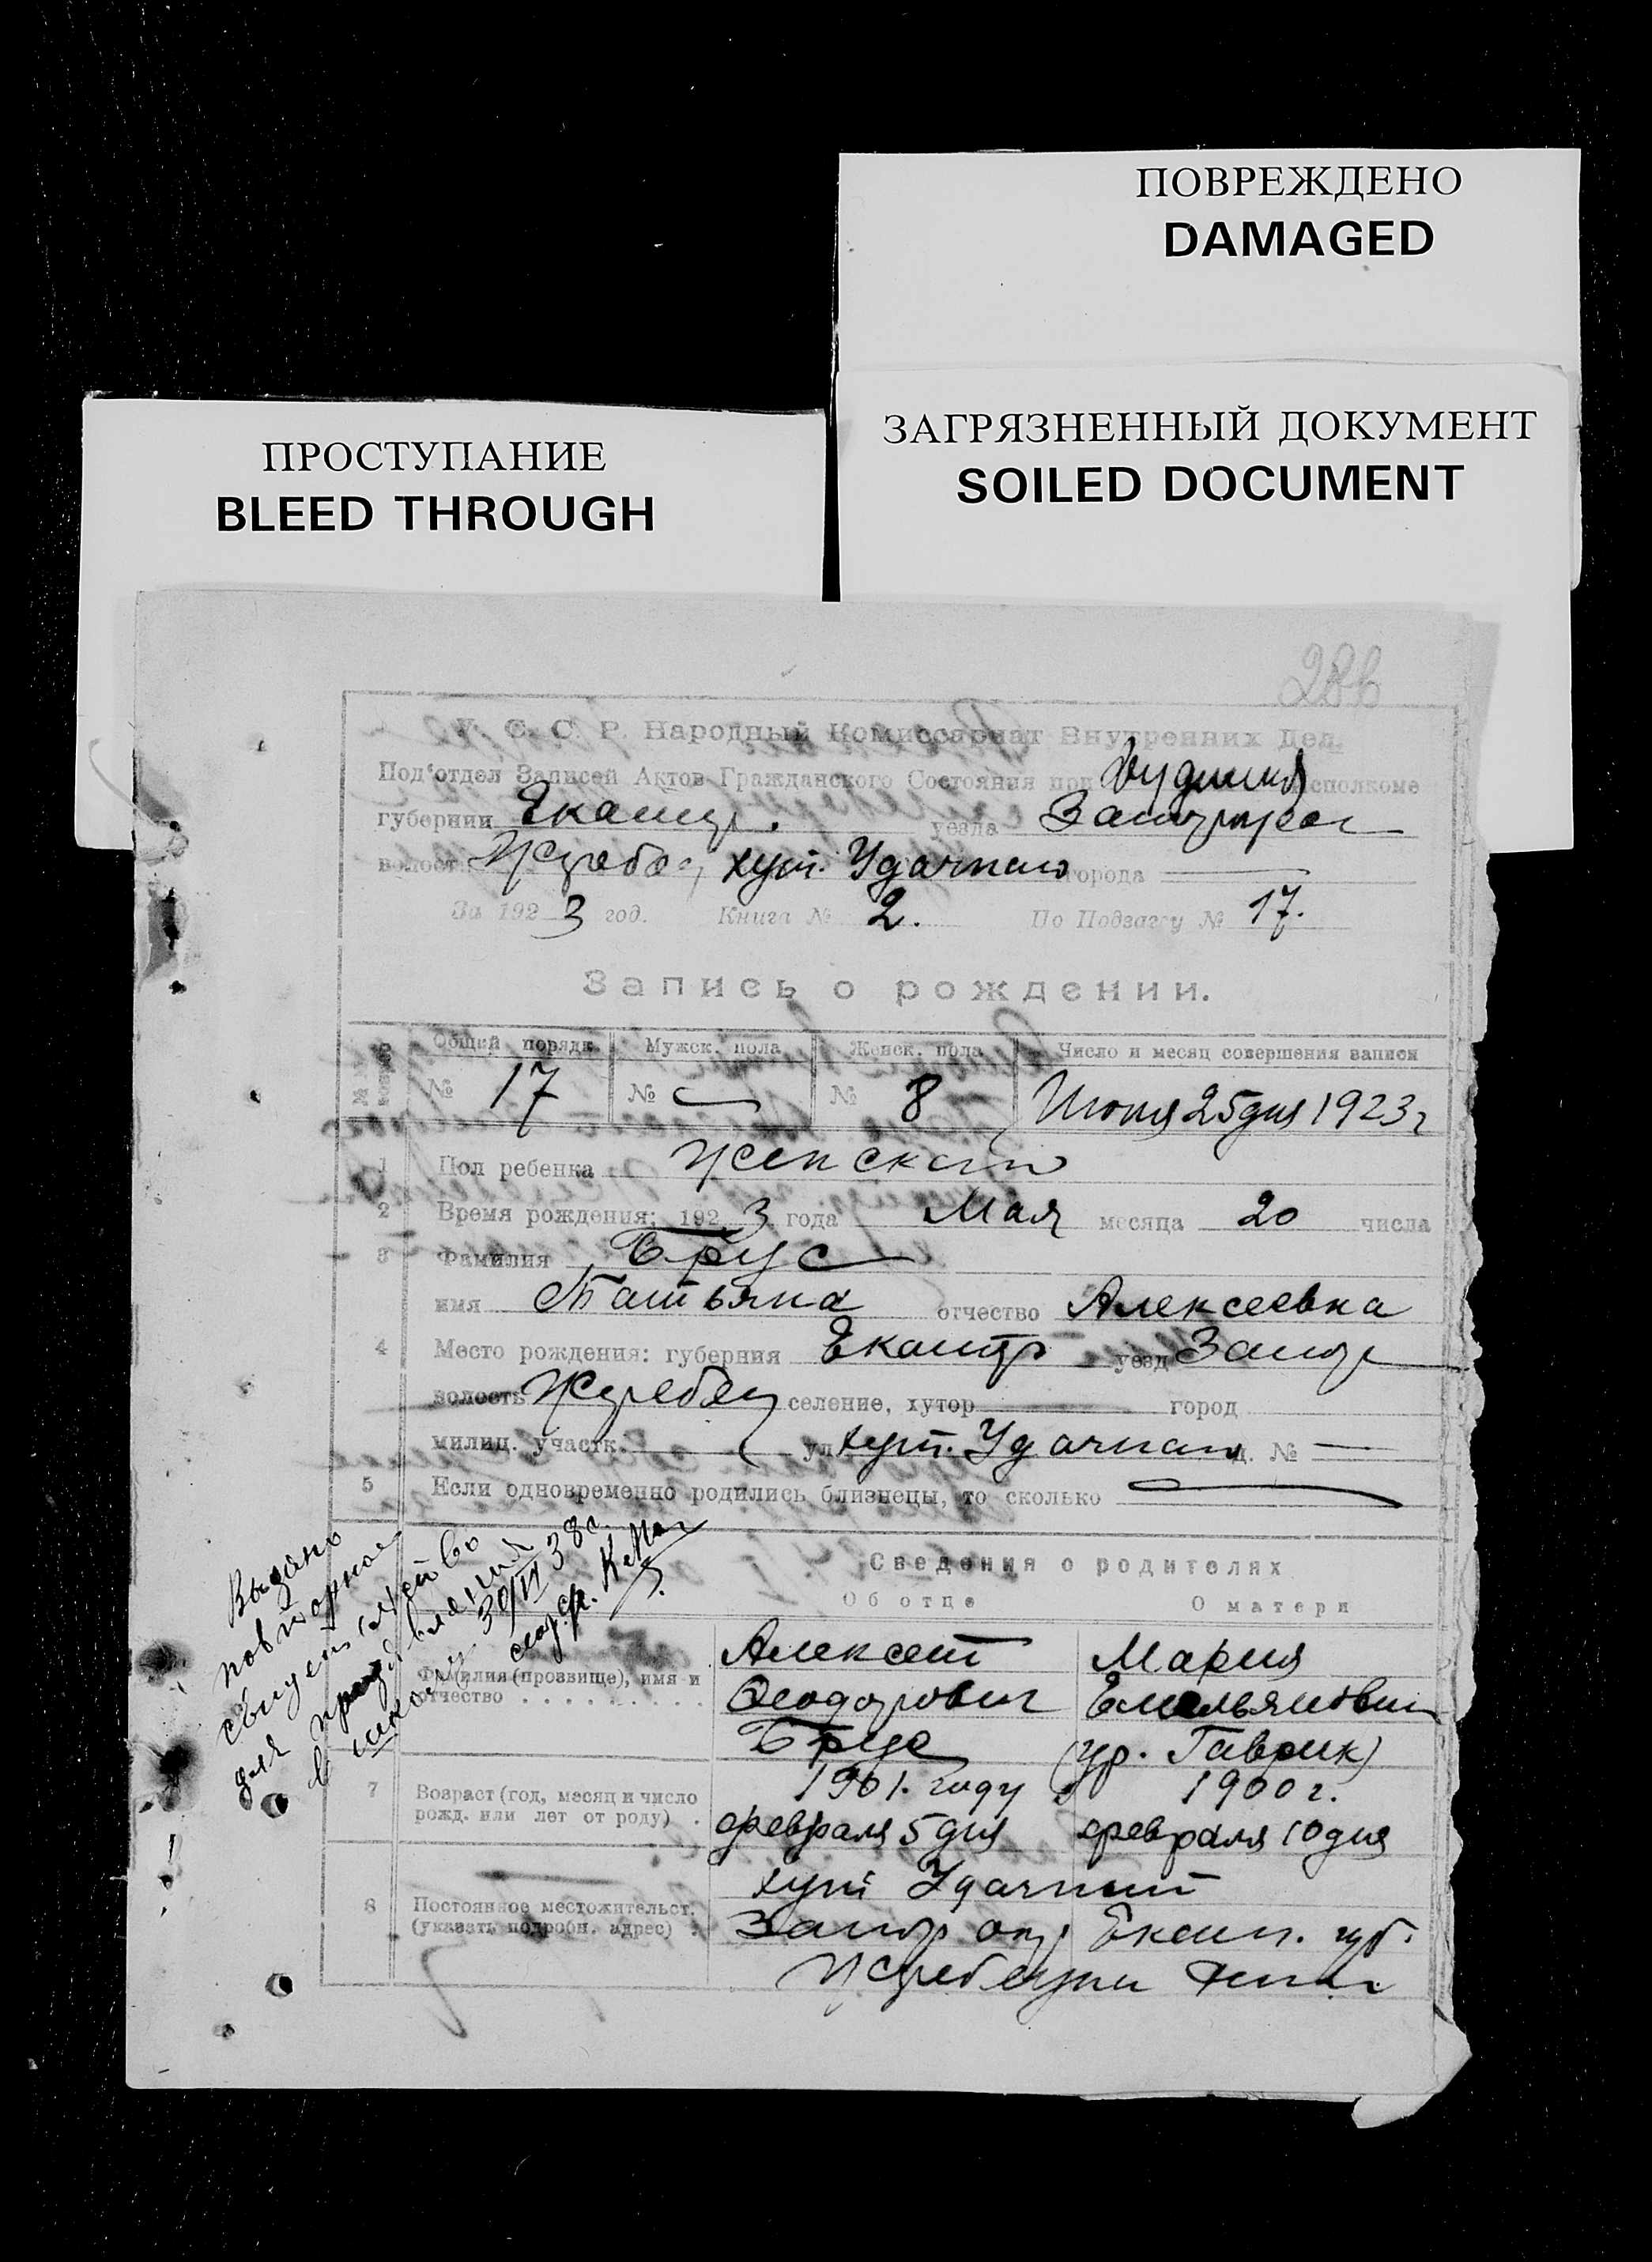 ПОВРЕЖДЕНО
DAMAGED
ЗАГРЯЗНЕННЫЙ ДОКУМЕНТ
SOILED DOCUMENT
ПРОСТУПАНИЕ
BLEED THROUGH
У. С. С. Р. Народный Комиссариат Внутренних Дел.
Под'отдел Записей Актов Гражданского Состояния при исполкоме
губернии Екатер. уезда
волост хут. Удачного города
За 1923 год. Книга № 2. По Подзагсу № 17.
Запись о рождении.
Общей порядк. Мужск. пола Женск. пола Число и месяц совершения записи
№ 17 № — № 8 Июня 25 дня 1923 г
1 Пол ребенка Женского
2 Время рождения: 1923 года Мая месяца 20 числа
3 Фамилия Брус
имя Татьяна отчество Алексеевна
4 Место рождения: губерния Екатер уезд Запор
волость Жеребец селение, хутор город
милиц. участк. ул. хут. Удачный д. № —
5 Если одновременно родились близнецы, то сколько —
Сведения о родителях
Об отце О матери
Фамилия (прозвище), имя и отчество
Алексей Мария
Феодорович Емельяновна
Брус (ур. Гаврик)
7 Возраст (год, месяц и число рожд. или лет от роду)
1901. году 1900 г.
февраля 5 дня февраля 10 дня
8 Постоянное местожительст. (указать подробн. адрес)
хут Удачный
Запор окр Екат. губ.
Выдано
повторное
свидетельство
для
в школу 30/VI 38 г.